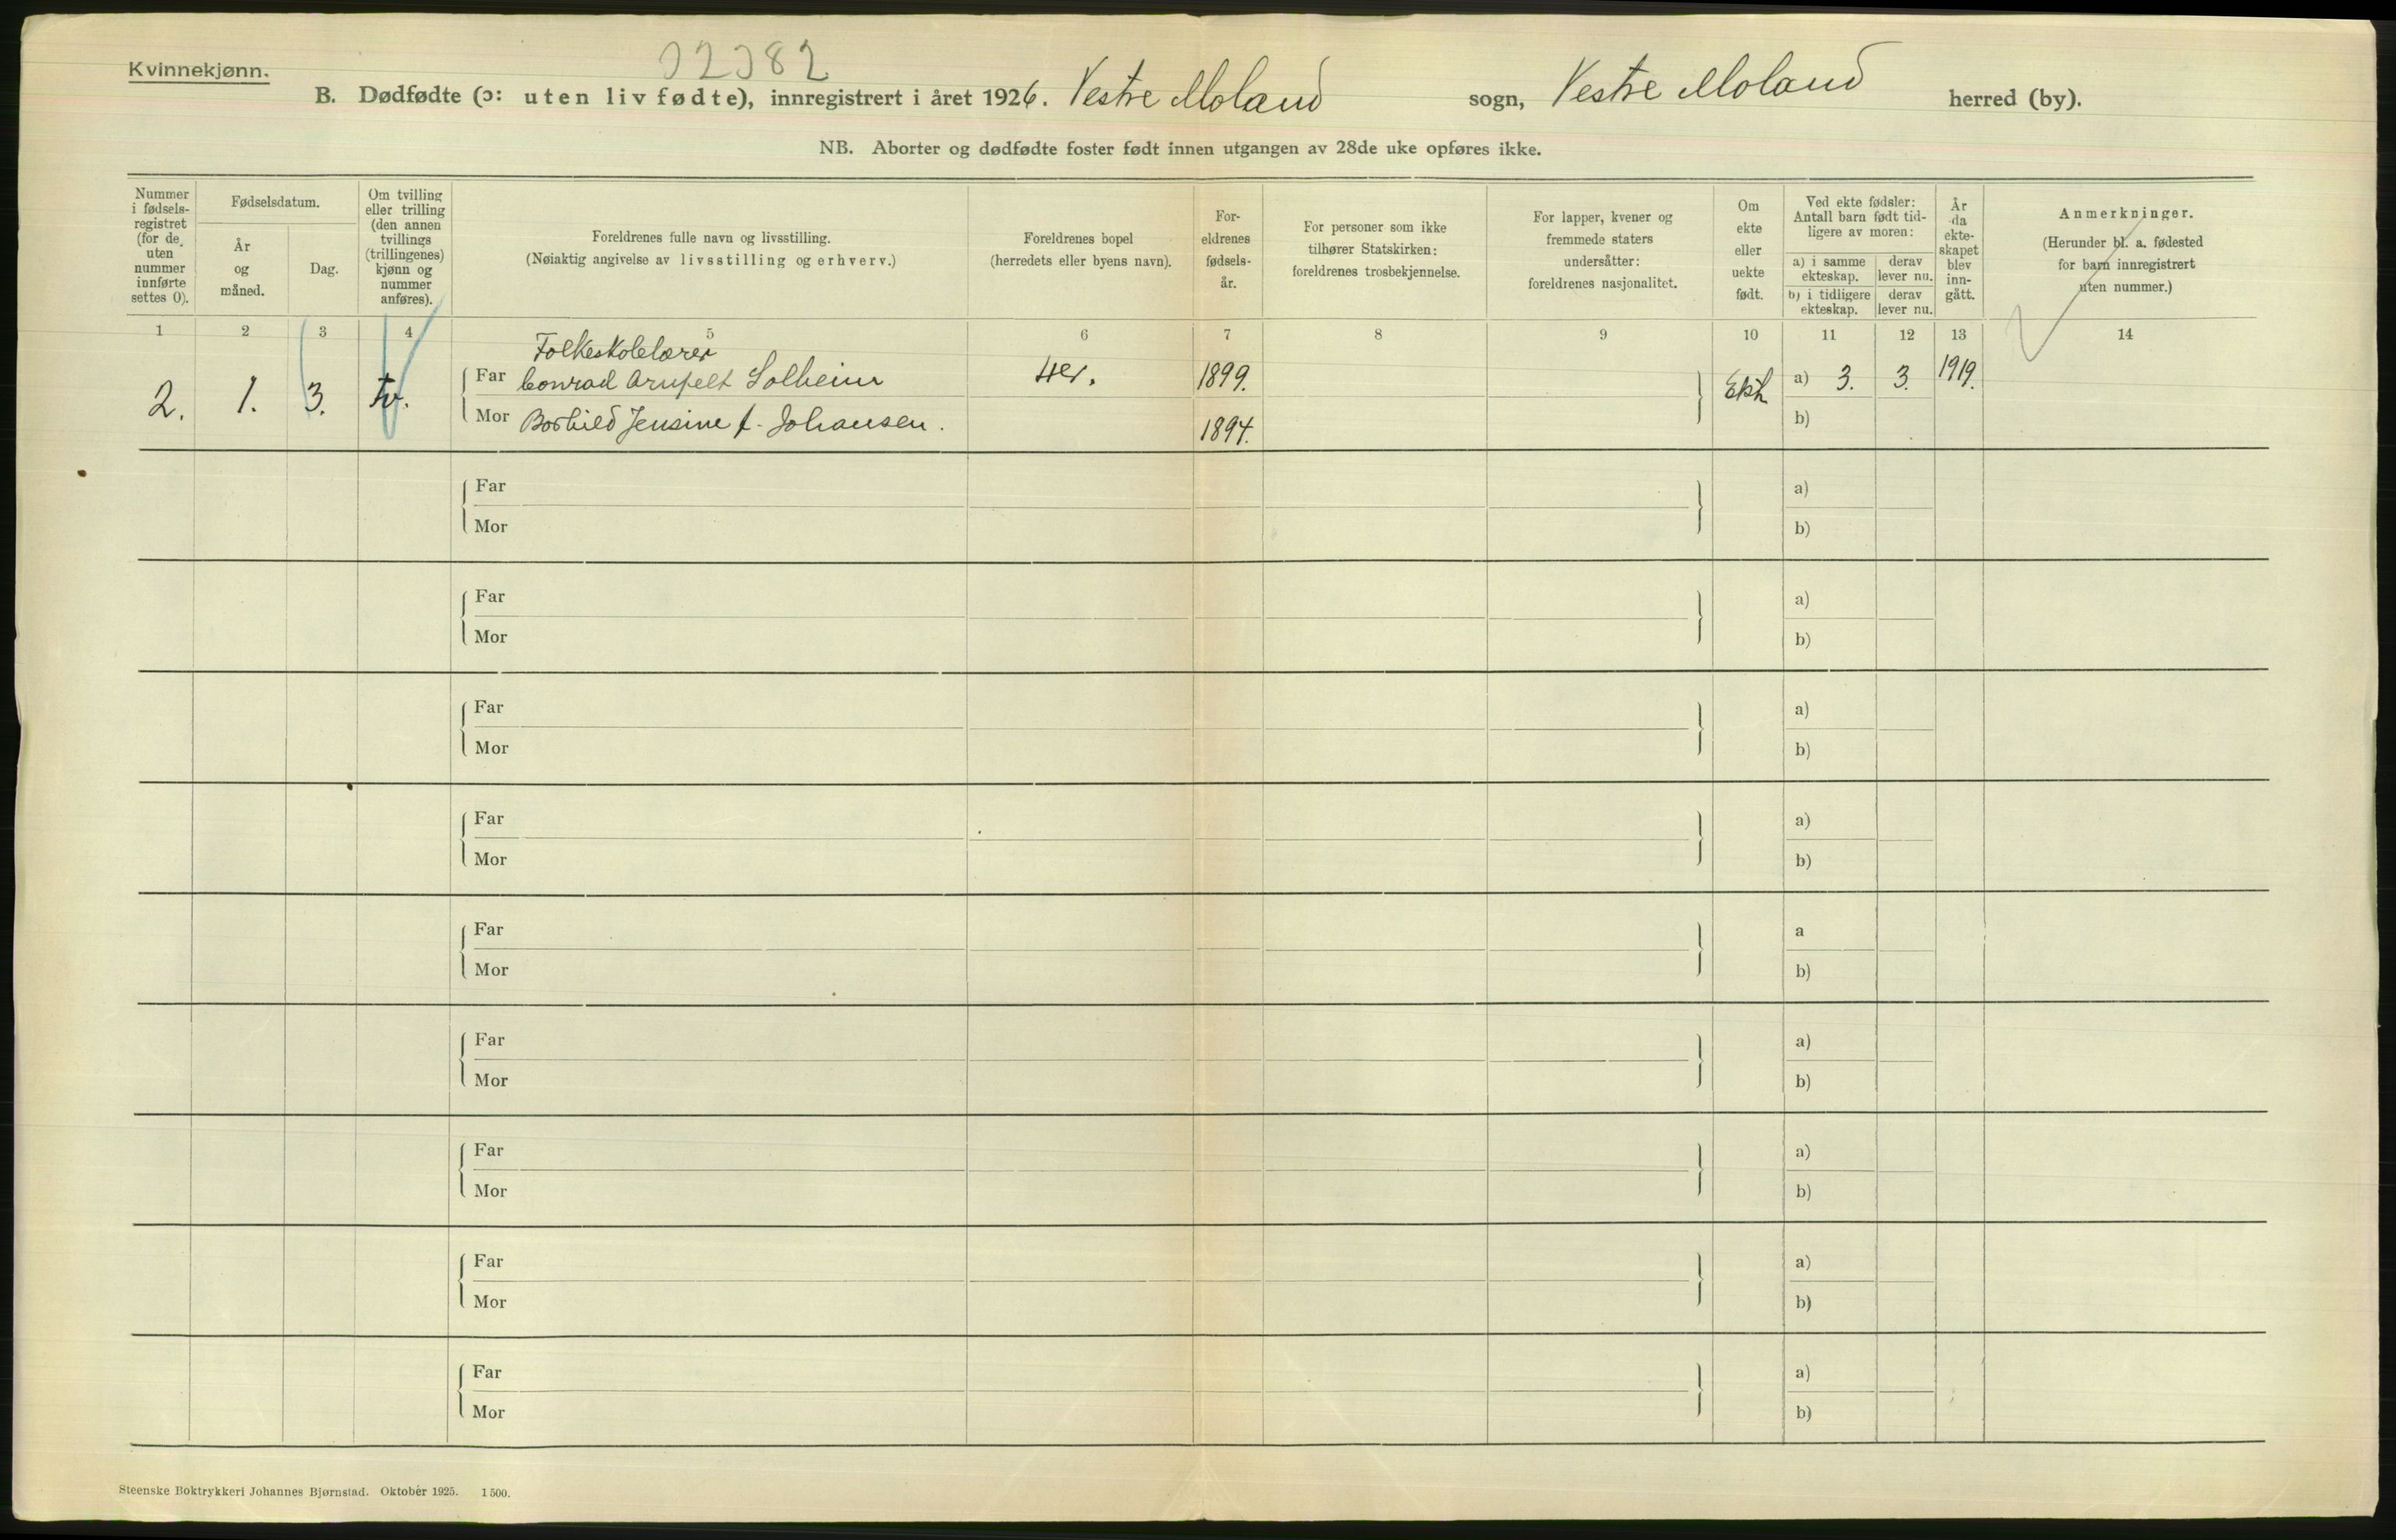 Kvinnekjønn.
02382
B. Dødfødte (ɔ: uten liv fødte), innregistrert i året 1926. Vestre Moland sogn, Vestre Moland herred (by).
NB. Aborter og dødfødte foster født innen utgangen av 28de uke opføres ikke.
Nummer i fødsels-registret (for de uten nummer innførte settes 0).
Fødselsdatum.
År og måned.
Dag.
Om tvilling eller trilling (den annen tvillings (trillingenes) kjønn og nummer anføres).
Foreldrenes fulle navn og livsstilling.
(Nøiaktig angivelse av livsstilling og erhverv.)
Foreldrenes bopel
(herredets eller byens navn).
For-eldrenes fødsels-år.
For personer som ikke tilhører Statskirken: foreldrenes trosbekjennelse.
For lapper, kvener og fremmede staters undersåtter: foreldrenes nasjonalitet.
Om ekte eller uekte født.
Ved ekte fødsler: Antall barn født tid-ligere av moren:
a) i samme ekteskap.
derav lever nu.
b) i tidligere ekteskap.
derav lever nu.
År da ekte-skapet blev inn-gått.
Anmerkninger.
(Herunder bl. a. fødested for barn innregistrert uten nummer.)
1 2 3 4 5 6 7 8 9 10 11 12 13 14
Folkeskolelærer
2. 1. 3. tv. Far Conrad Solheim Her. 1899. Ekte a) 3. 3. 1919.
Mor Borhild Jensine f. Johansen. 1894. b)
Far a)
Mor b)
Far a)
Mor b)
Far a)
Mor b)
Far a)
Mor b)
Far a
Mor b)
Far a)
Mor b)
Far a)
Mor b)
Far a)
Mor b)
Far a)
Mor b)
Steenske Boktrykkeri Johannes Bjørnstad. Oktober 1925. 1500.